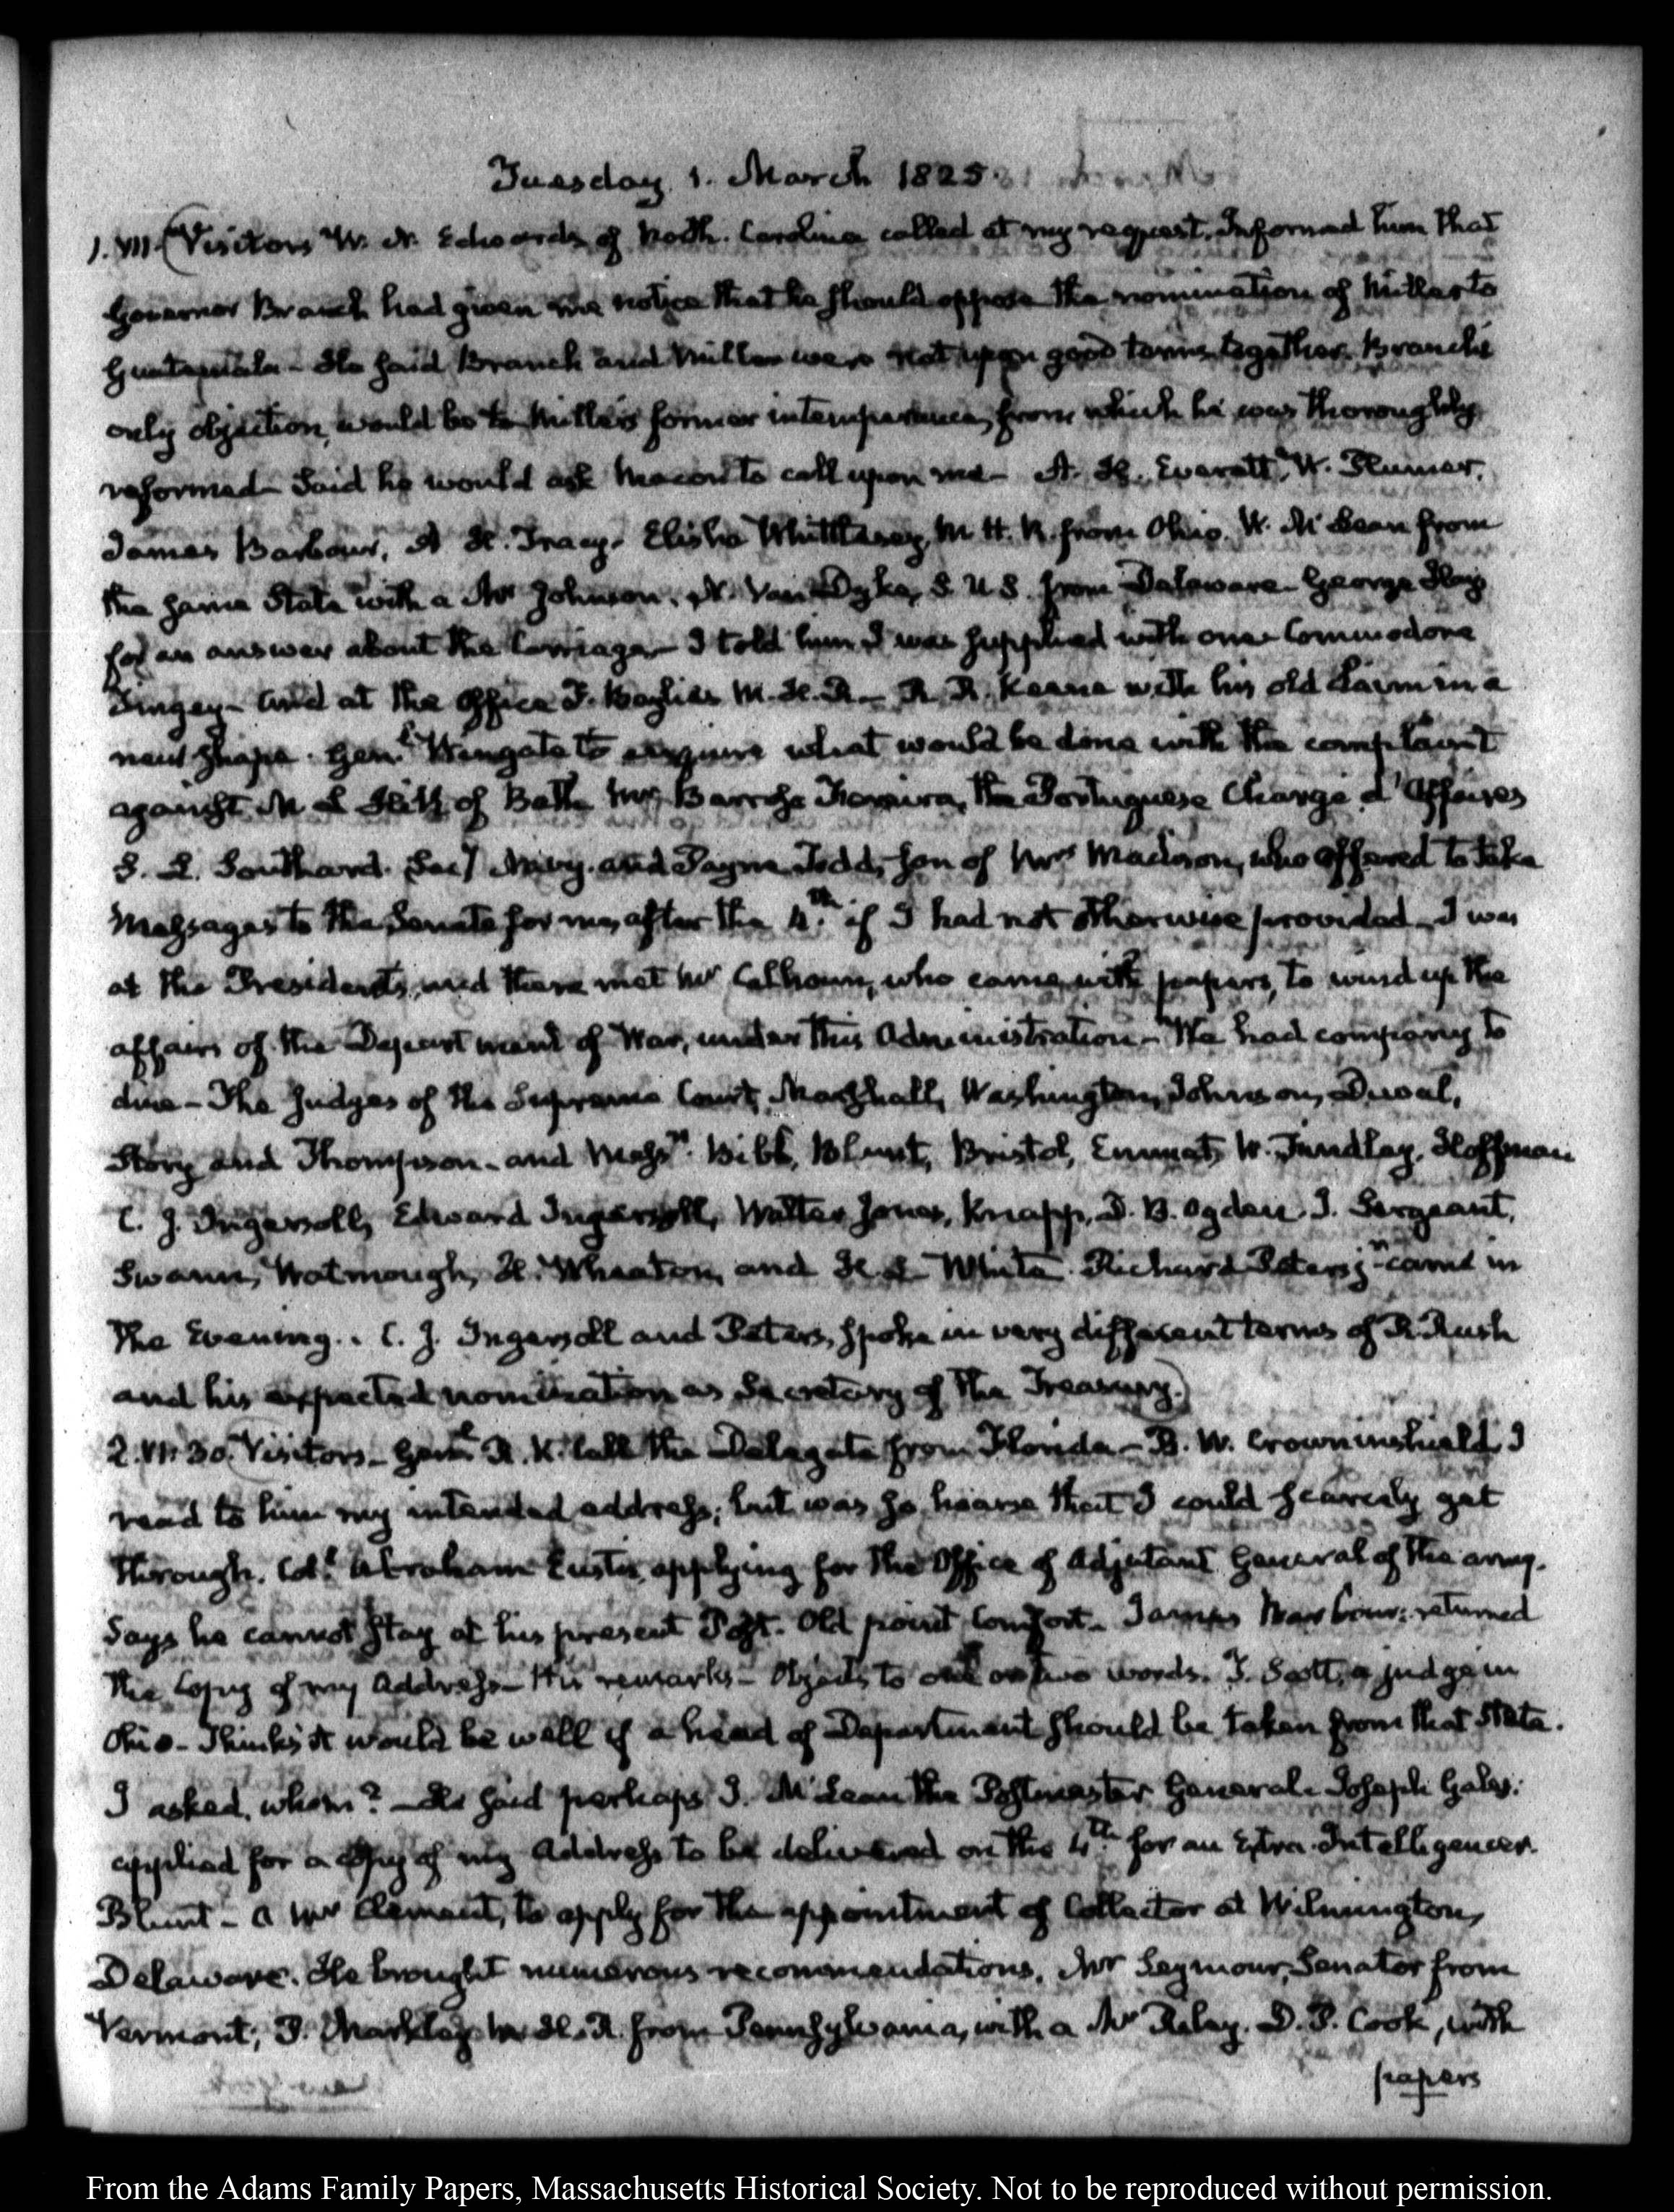 Tuesday 1. March 1825.
1. VII. (Visitors W. N. Edwards of North. Carolina called at my request. Informed him that
Governor Branch had given me notice that he should oppose the nomination of Miller to
Guatemala – He said Branch and Miller were not upon good terms together. Branch's
only objection, would be to Miller's former intemperance, from which he was thoroughly
reformed – Said he would ask Macon to call upon me – A. H. Everett, W. Plumer,
James Barbour, A H. Tracy. Elisha Whittlesey, M. H. R. from Ohio. W. McLean from
the same State with a Mr Johnson. N. Van Dyke, S. U S. from Delaware. George Hay
for an answer about the Carriage – I told him I was supplied with one – Commodore
Tingey – And at the Office F. Baylies M. H. R – R. R. Keene with his old claim in a
new shape. Genl. Wingate to enquire what would be done with the complaint
against M L Hill of Bath Mr Barroso Pereira, the Portuguese Chargé d'Affaires
S. L. Southard. Secy Navy. and Payne Todd, Son of Mrs Madison, who offered to take
Messages to the Senate for me, after the 4th. if I had not otherwise provided – I was
at the President's, and there met Mr Calhoun, who came with papers, to wind up the
affairs of the Department of War, under this Administration – We had company to
dine – The Judges of the Supreme Court, Marshall, Washington, Johnson, Duval,
Story and Thompson – and Messrs. Bibb, Blunt, Bristol, Emmet, W. Findlay, Hoffman
C. J. Ingersoll, Edward Ingersoll, Walter Jones, Knapp, D. B. Ogden. J. Sergeant,
Swann, Watmough, H. Wheaton, and H. L. White. Richard Peters jr. came in
the Evening. C. J. Ingersoll and Peters, spoke in very different terms of R. Rush
and his expected nomination as Secretary of the Treasury.)
2. VI. 30. (Visitors – Genl R. K. Call the Delegate from Florida – B. W. Crowninshield. I
read to him my intended address; but was so hoarse that I could scarcely get
through. Coll. Abraham Eustis, applying for the Office of Adjutant General of the army.
Says he cannot stay at his present Post. Old point Comfort – James Barbour: returned
the Copy of my Address – His remarks – Objects to one or two words. T. Scott, a judge in
Ohio – Thinks it would be well if a head of Department should be taken from that State.
I asked, whom? – He said perhaps J. McLean the Postmaster General – Joseph Gales:
applied for a copy of my Address to be delivered on the 4th. for an Extra. Intelligencer.
Blunt – a Mr Clement, to apply for the appointment of Collector at Wilmington,
Delaware. He brought numerous recommendations, Mr Seymour, Senator from
Vermont; P. Markley M. H. R. from Pennsylvania, with a Mr Riley. D. P. Cook, with
papers
From the Adams Family Papers, Massachusetts Historical Society. Not to be reproduced without permission.